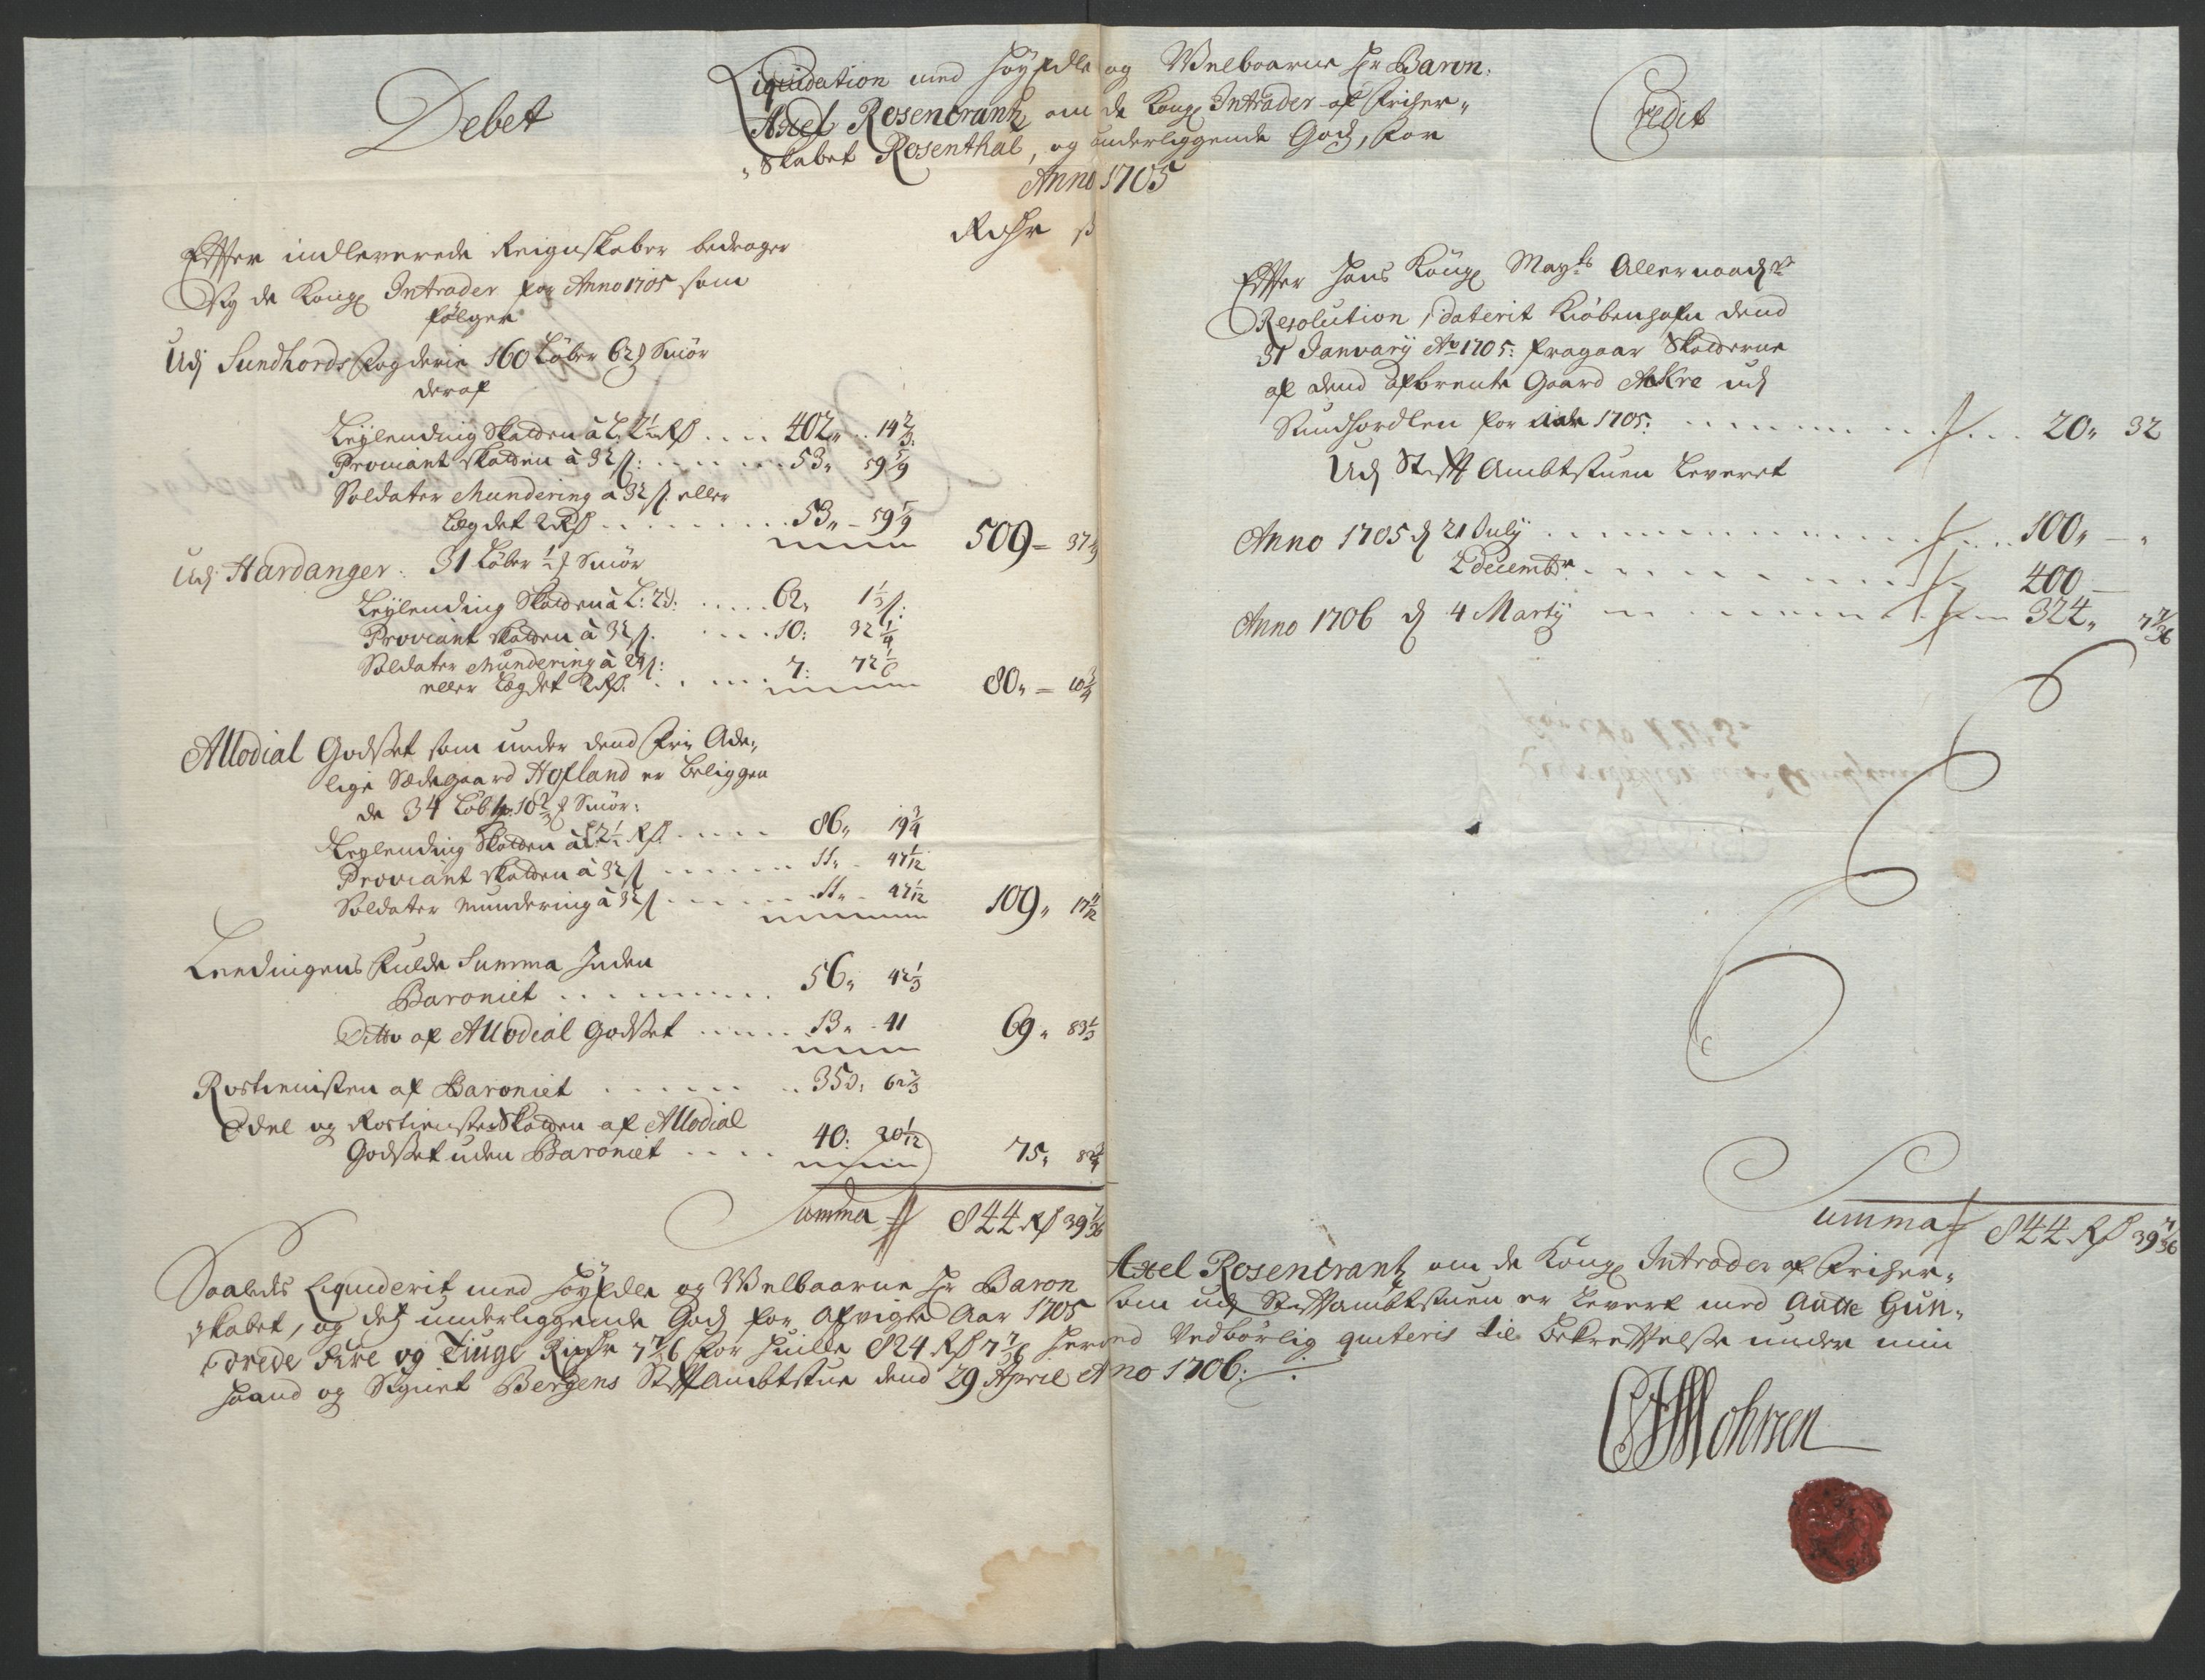 Debet
Liquidation med Høyædle og Welbaarne Hr Baron
Axel Rosencrantz om de Kongl Intrader af Friher„
„skabet Rosenthal, og underliggende Godz, for
Anno 1705
Credit
Rixdr ß
Efter indleverede Reignskaber bedrager
Sig de Kongl Intrader for Anno 1705 som
følger
Udj Sundhords fogderie 160 Løber 6 Smør
deraf
Leylending Skatden à L. 2½ Rd .... 402„ 14 2/3
Proviant skatden à 32 ß: ...... 53„ 59 5/9
Soldater Mundering a 32 ß eller
Legdet 2 Rd ......... 53„ – 59 5/9 509 – 37
Udj Hardanger: 31 Løber ½ Smør
Leylending Skatden à L: 2d: ..... 62„ 1 1/3 ß:
Proviant skatden à 32 ß. .... 10: 32 1/4
Soldater Mundering à 24 ß:
eller Legdet 2 Rd. ..... 7: 72 1/6 80„ – 10 3/4
Allodial Godset som under dend frie Ade„
lige Sædegaard Hafland er beliggen
de 34 Løb 10 Smør:
Leylending Skatden à 2½ Rd ..... 86„ 19 3/4
Proviant skatden à 32 ß ...... 11„ – 47 1/12
Soldater mundering à 32 ß ...... 11„ – 47 1/12 109„ 17 11/12
Leedingens fulde Summa Inden
Baroniet ......... 56„ 42 1/3
Ditto af Allodial Godset ..... 13„ – 41 69„ 83 1/3
Rostienisten af Baroniet ........ 35„ 62 2/3
Odel og Rostienste Skatden af Allodial
Godset uden Baroniet .... 40: 20 1/12 75„ 82 3/4
Summa 844 Rd 39 7/36
Efter Hans Kongl Mayts Allernaadste
Resolution, daterit Kiøbenhafn dend
31 January Ao 1705: fragaar Skatderne
af dend afbrente Gaard Akre udj
Sundhordlen for Aar 1705: ........ 20„ 32
Udj Stift Ambtstuen Leveret
Anno 1705 d 21 July ........ 100„ – „
2 decembr ........ 400 –
Anno 1706 d 4 Marty ........ 324„ 7 7/36
Summa 844 Rd 39 7/36
Saaleds Liquiderit med Høyædle og Welbaarne Hr Baron Axel Rosencrantz om de Kongl Intrader af Friher„
skabet, og des underliggende Godz for afvigte Aar 1705 som udj Stiftambtstuen er Levert med Aatte Hun„
drede fire og Tiuge Rixdr 7 7/36 for huilke 824 Rd 7 7/36 herved Vedbørlig qviteris til Bekreftelse under min
Haand og Signet Bergens Stiftambtstue dend 29 April Anno 1706: